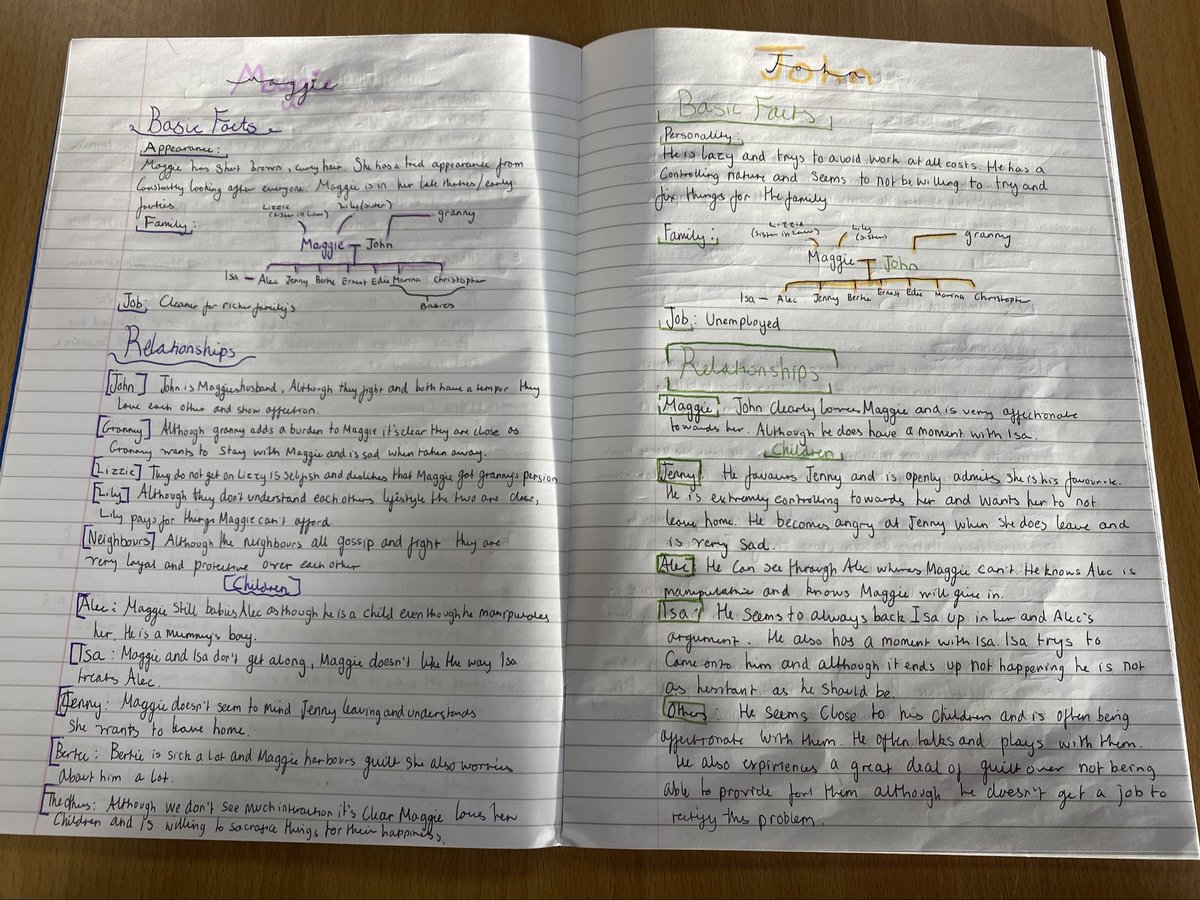 Maggie
Basic Facts
Appearance:
Maggie has short brown, curly hair. She has a tired appearance from
Constantly looking after everyone. Maggie is in her late thirties/early
forties
Family:
Lizzie (sister in law)
Lily (sister)
granny
Maggie John
Isa – Alec Jenny Bertie Ernest Edie Marina Christopher
Babies
Job: Cleaner for richer family's
Relationships
[John] John is Maggies husband, Although they fight and both have a temper they
love each other and show affection.
[Granny] Although granny adds a burden to Maggie it's clear they are close as
Granny wants to stay with Maggie and is sad when taken away.
[Lizzie] They do not get on Lizzy is selfish and dislikes that Maggie got granny's pension
[Lily] Although they don't understand each others lifestyle the two are close,
Lily pays for things Maggie can't afford.
[Neighbours] Although the neighbours all gossip and fight they are
very loyal and protective over each other
[Children]
Alec: Maggie still babies Alec as though he is a child even though he manipulates
her. He is a Mummy's boy.
Isa: Maggie and Isa don't get along, Maggie doesn't like the way Isa
treats Alec.
Jenny: Maggie doesn't seem to mind Jenny leaving and understands
she wants to leave home.
Bertie: Bertie is sick a lot and Maggie harbours guilt she also worries
about him a lot.
The others: Although we don't see much interaction it's clear Maggie loves her
Children and is willing to sacrifice things for their happiness.
John
Basic Facts
Personality:
He is lazy and trys to avoid work at all costs. He has a
controlling nature and seems to not be willing to try and
fix things for the family
Family:
Lizzie (sister in law)
Lily (sister)
granny
Maggie John
Isa – Alec Jenny Bertie Ernest Edie Marina Christopher
Job: Unemployed
Relationships
Maggie John clearly loves Maggie and is very affectionate
towards her. Although he does have a moment with Isa.
Children
Jenny He favours Jenny and is openly admits she is his favourite.
He is extremely controlling towards her and wants her to not
leave home. He becomes angry at Jenny when she does leave and
is very sad.
Alec He can see through Alec wheras Maggie can't. He knows Alec is
manipulative and knows Maggie will give in.
Isa: He seems to always back Isa up in her and Alec's
argument. He also has a moment with Isa. Isa trys to
Come onto him and although it ends up not happening he is not
as hesitant as he should be.
Others: He seems close to his children and is often being
affectionate with them. He often talks and plays with them.
He also expiriences a great deal of guilt over not being
able to provide for them although he doesn't get a job to
rectify this problem.